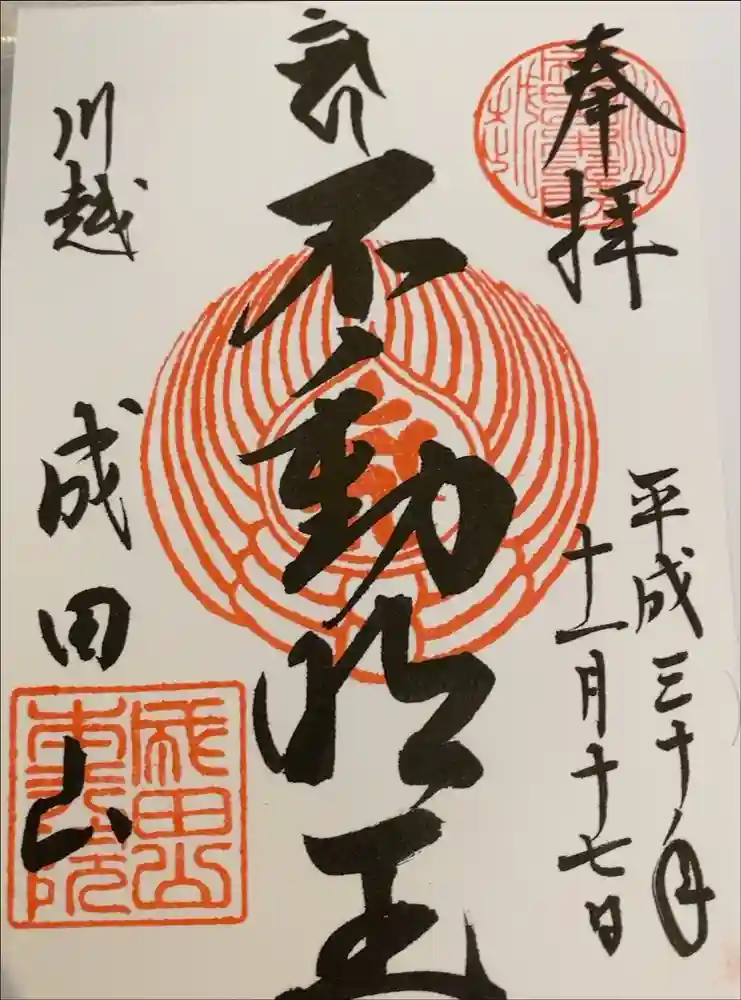 奉拝
平成三十年
十一月十七日
不動明王
川越
成田山
成田山